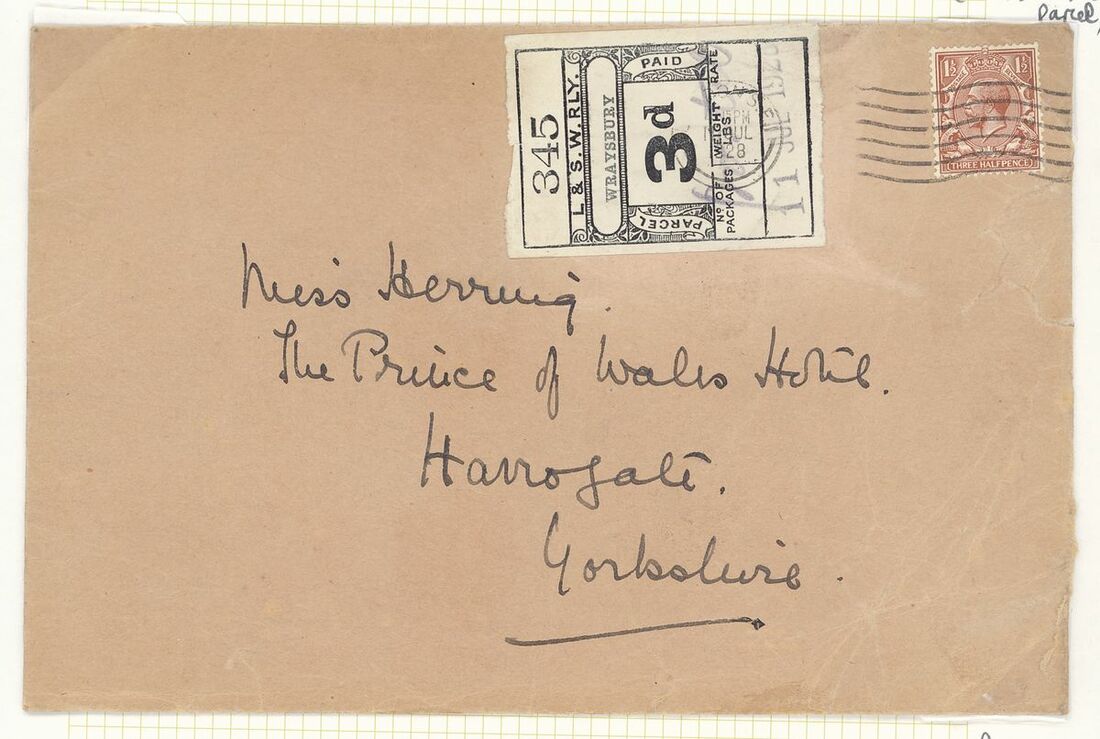 Parcel,
345
L & S.W. RLY.
WRAYSBURY
PAID
3d
PARCEL
RATE
WEIGHT LBS.
Nº OF PACKAGES
PM
JUL
28
11 JUL 1928
1½ 1½
THREE HALFPENCE
Miss Herring.
The Prince of Wales Hotel.
Harrogate.
Yorkshire.